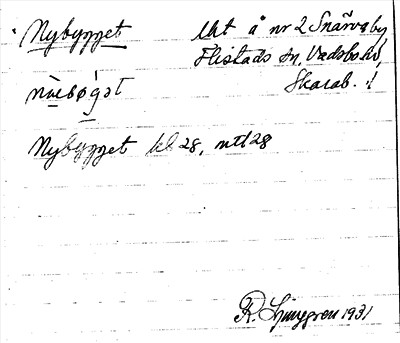 Nybygget
Uht å nr 2 Snärvaby
Flistads sn, Vadsbo hd,
Skarab. l
Nybygget kl 28, ntl 28
R. Ljunggren 1931